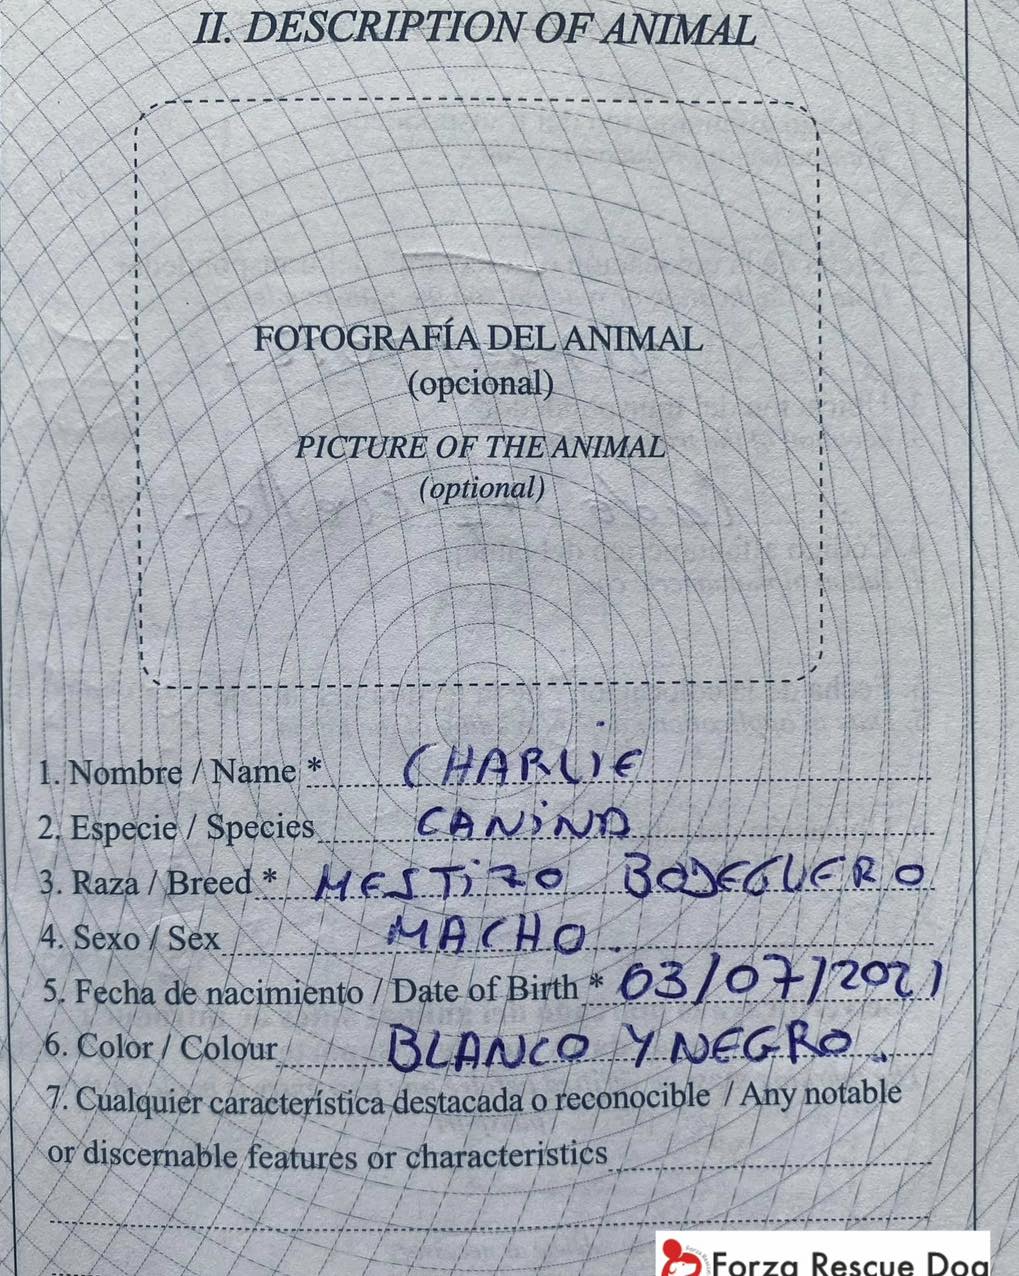 II. DESCRIPTION OF ANIMAL
FOTOGRAFÍA DEL ANIMAL
(opcional)
PICTURE OF THE ANIMAL
(optional)
1. Nombre / Name * CHARLiE
2. Especie / Species CANiNA
3. Raza / Breed * MESTiZO BODEGUERO
4. Sexo / Sex MACHO.
5. Fecha de nacimiento / Date of Birth * 03/07/2021
6. Color / Colour BLANCO Y NEGRO.
7. Cualquier característica destacada o reconocible / Any notable
or discernable features or characteristics
Forza Rescue Dog